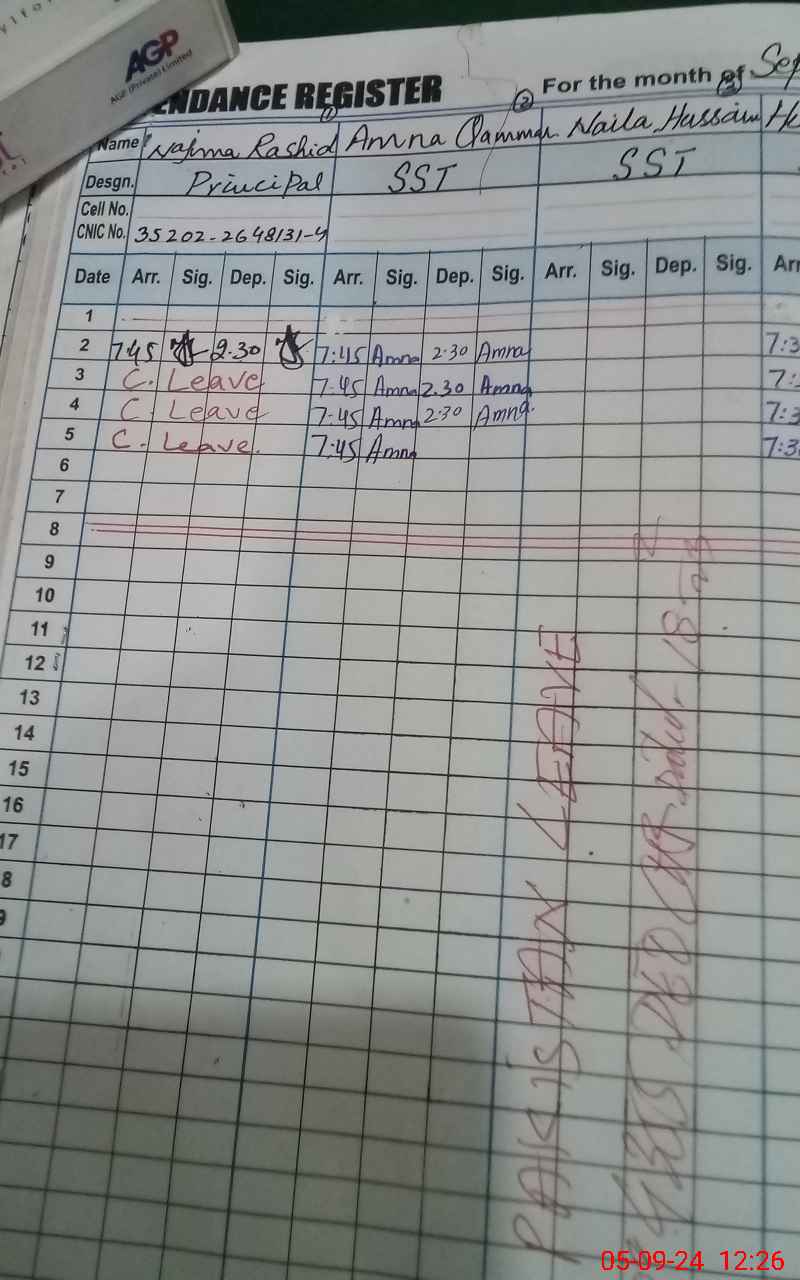 AGP
AGP (Private) Limited
ENDANCE REGISTER For the month of Sep
Name Najma Rashid Amna Qammar Naila Hussain
Desgn. Principal SST SST
Cell No.
CNIC No. 35202-2648131-4
Date Arr. Sig. Dep. Sig. Arr. Sig. Dep. Sig. Arr. Sig. Dep. Sig. Arr
1
2 7:45 2.30 7:45 Amna 2:30 Amna 7:3
3 C. Leave 7:45 Amna 2.30 Amna 7:
4 C. Leave 7:45 Amna 2:30 Amna. 7:3
5 C. Leave. 7:45 Amna 7:3
6
7
8
9
10
11
12
13
14
15
16
17
8
9
PAKISTAN LEAVE
DEO
05-09-24 12:26